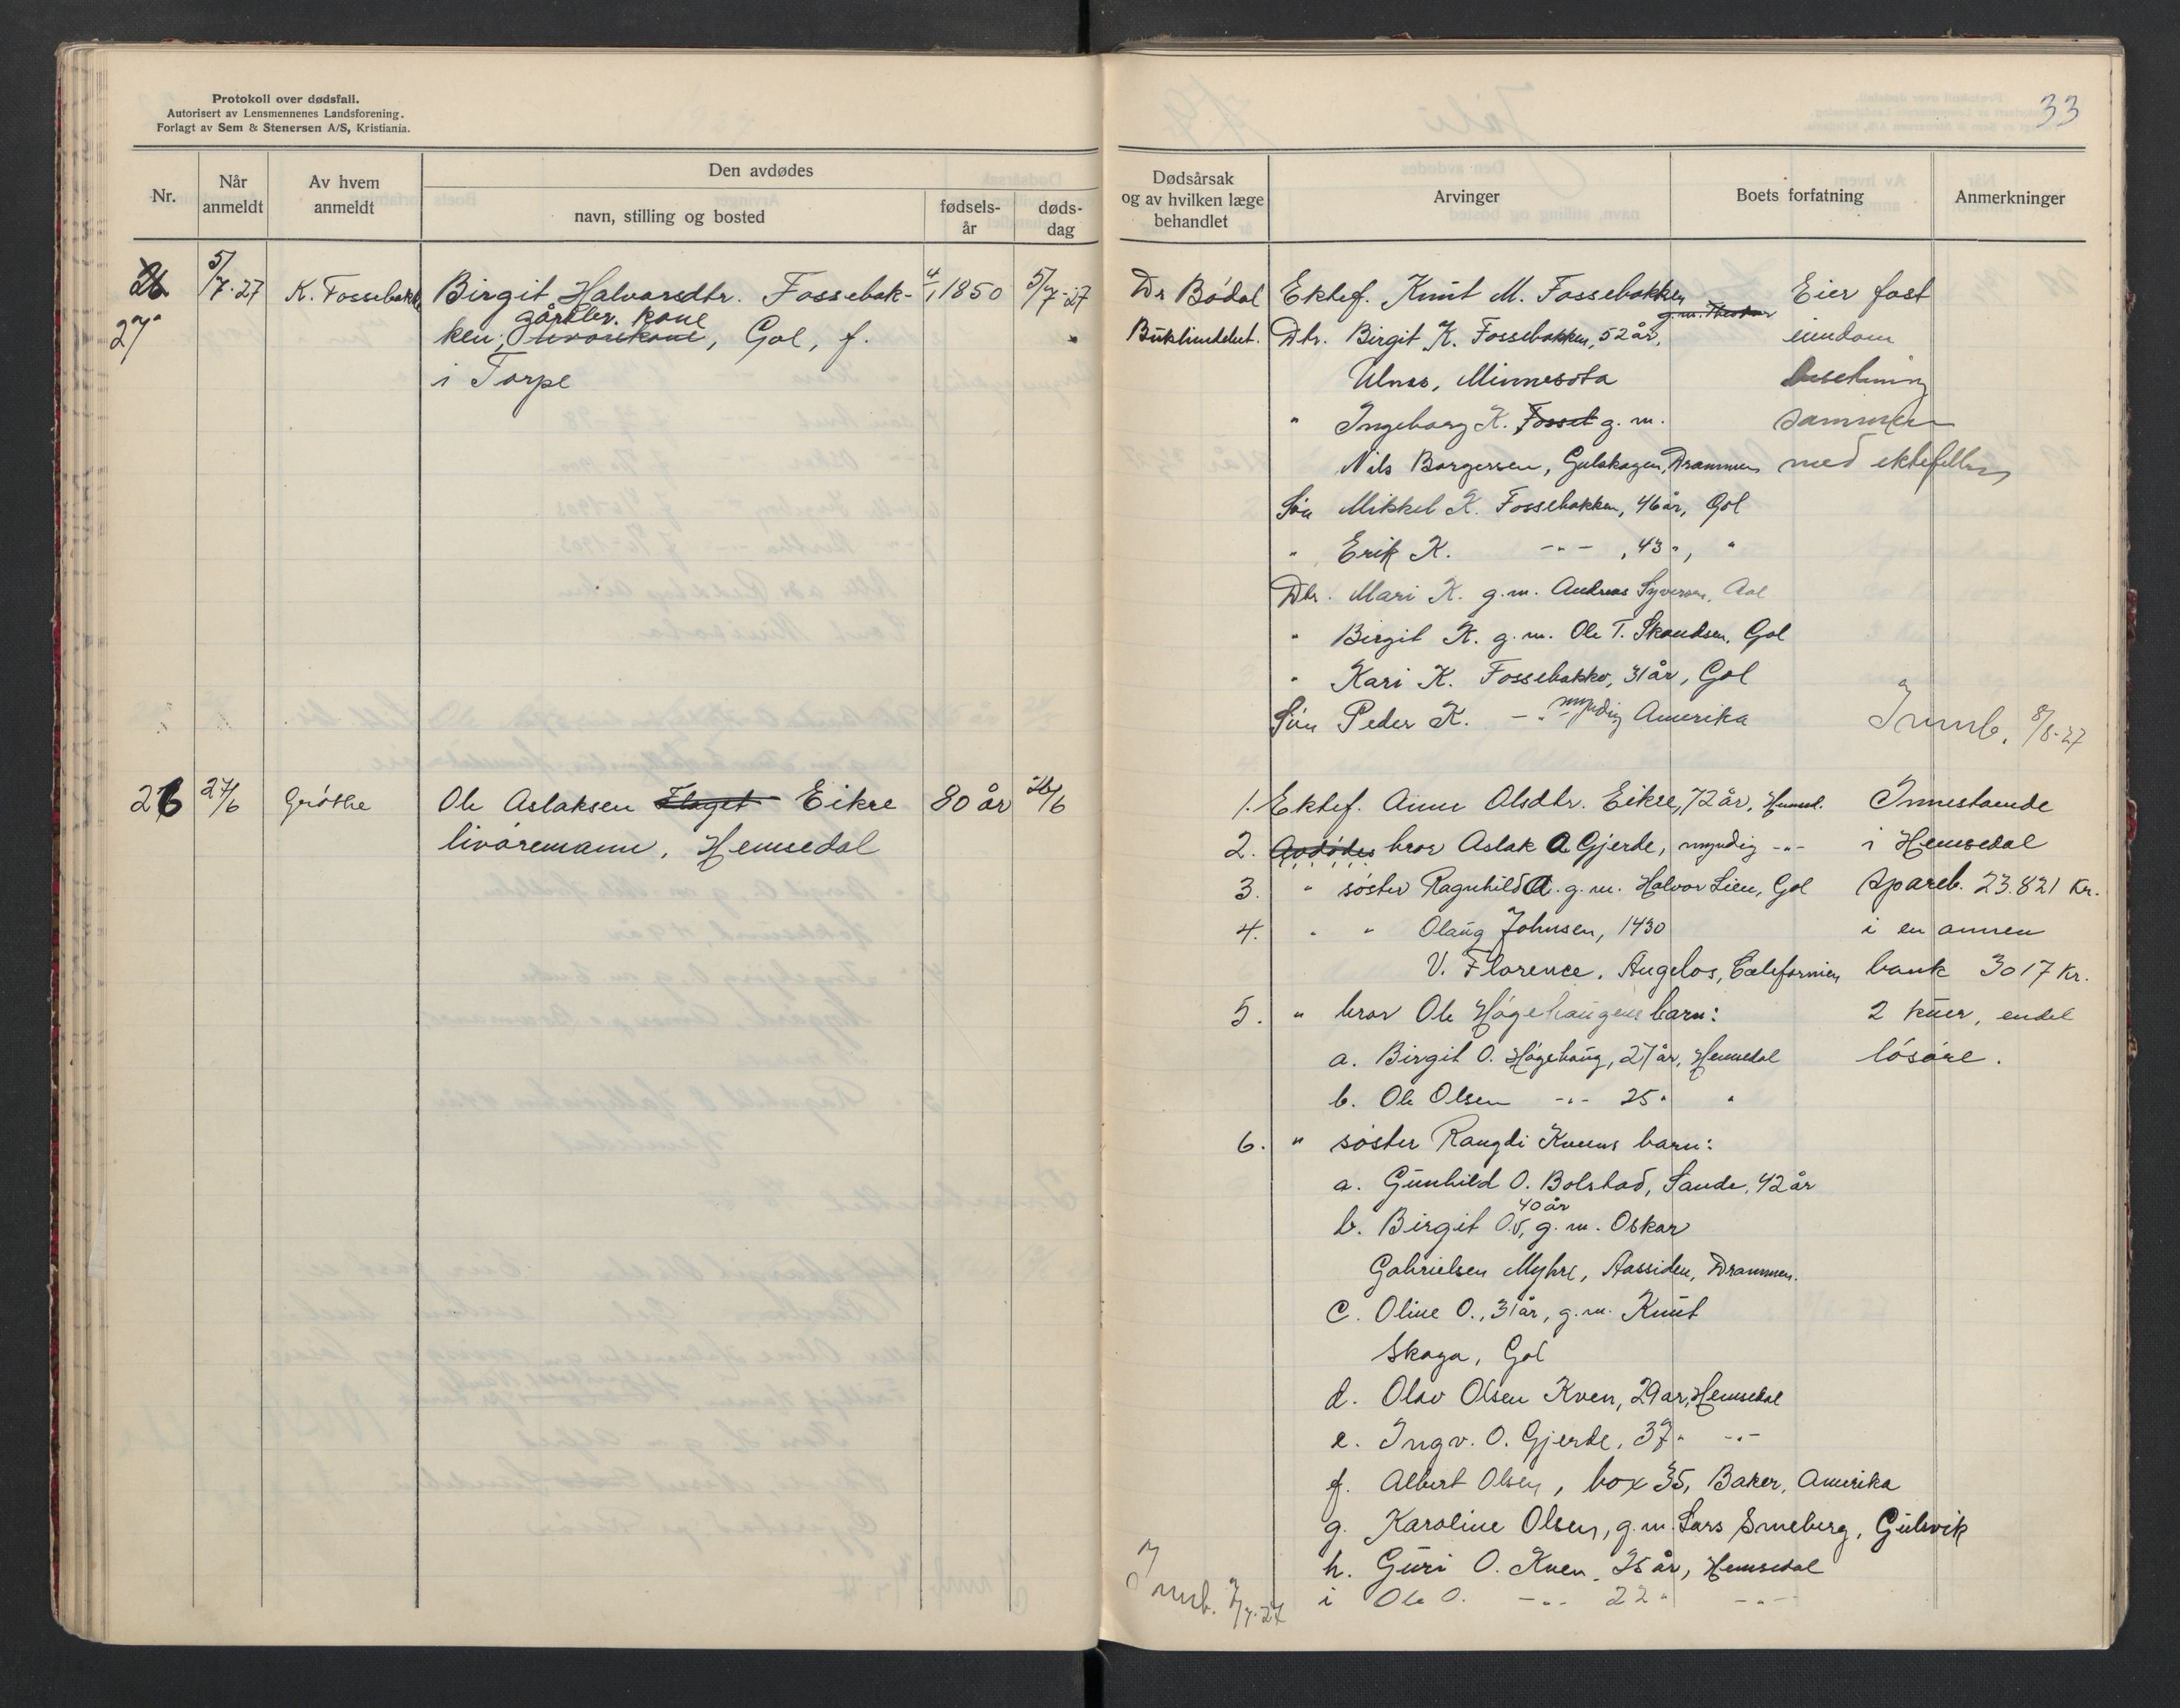 Protokoll over dødsfall.
Autorisert av Lensmennenes Landsforening.
Forlagt av Sem & Stenersen A/S, Kristiania.
33
Nr.
Når anmeldt
Av hvem anmeldt
Den avdødes
navn, stilling og bosted
fødsels-år
døds-dag
Dødsårsak og av hvilken læge behandlet
Arvinger
Boets forfatning
Anmerkninger
26 5/7-27 K. Fossebakke Birgit Halvarsdtr. Fossebak- 4/1 1850 5/7-27
gårdbr. kone
27 ken, livørekone, Gol, f.
i Torpe
Dr Bødal Ektef. Knut M. Fossebakken Eier fast
Bukhindebet. Dtr. Birgit K. Fossebakken, 52 år, eiendom
Ulnes, Minnesota besetning
" Ingeborg K. Fosset g. m. sammen
Nils Borgersen, Gulskogen, Drammen med ektefellen
Søn Mikkel K. Fossebakken, 46 år, Gol
" Erik K. -"- , 43 ", "
Dtr. Mari K. g. m. Andreas Syversen, Aal
" Birgit K. g. m. Ole T. Skaudsen, Gol
" Kari K. Fossebakke, 31 år, Gol
Søn Peder K. -"- myndig Amerika Innb. 8/8-27
26 27/6 Grøthe Ole Aslaksen Flaget Eikre 80 år 26/6
livøremann, Hemsedal
1. Ektef. Anne Olsdtr. Eikre, 72 år, Hemsed. Innestaende
2. Avdødes bror Aslak A Gjerde, myndig -"- i Hemsedal
3. " søster Ragnhild A. g. m. Halvor Lien, Gol Spareb. 23.821 Kr.
4. " " Olaug Johnsen, 1430 i en annen
V. Florence, Angelos, Californien bank 3017 Kr.
5. " bror Ole Høgehaugens barn: 2 kuer, endel
a. Birgit O. Høgehaug, 27 år, Hemsedal løsøre.
b. Ole Olsen -"- 25 " "
6. " søster Rangdi Kveens barn:
a. Gunhild O. Bolstad, Sande, 42 år
40 år
b. Birgit O., g. m. Oskar
Gabrielsen Myhre, Aassiden, Drammen.
c. Oline O., 31 år, g. m. Knut
Skaga, Gol
d. Olav Olsen Kven, 29 ar, Hemsedal
e. Ingv. O. Gjerde, 37 " -"-
f. Albert Olsen, box 35, Baker, Amerika
g. Karoline Olsen, g. m. Lars Smeberg, Gulsvik
h. Guri O. Kven, 25 år, Hemsedal
i Ole O. -"- 22 " -"-
Innb. 7/7-27